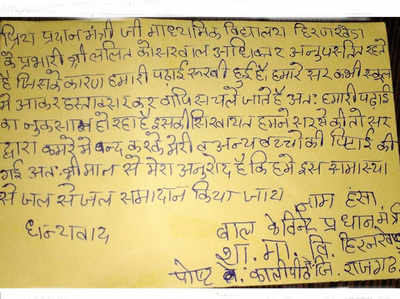 प्रिय प्रधान मंत्री जी माध्यमिक विद्यालय हिरनखेडा
के प्रभारी श्री ललित कोसरवाल अधिकार अनुपस्तित रहते
है जिसके कारण हमारी पढ़ाई रूखी हुई है, हमारे सर कभी स्कूल
मे आकर हस्ताक्सर कर वापिस चले जाते है अतः हमारी पढ़ाई
का नुकसान हो रहा है इसकी सिखायत हमने सर से की तो सर
द्वारा कमरे मे बन्द करके मेरी व अन्य बच्चो की पिटाई की
गई अतः श्री मान से मेरा अनुरोद है कि हमे इस सामास्या
से जल से जल समादान किया जाय
धन्यवाद
नाम हसा.
बाल केविनेट प्रधान मंत्री
शा. मा. वि. हिरनखेडा
पोष्ट कालीपीठ जि. राजगढ़